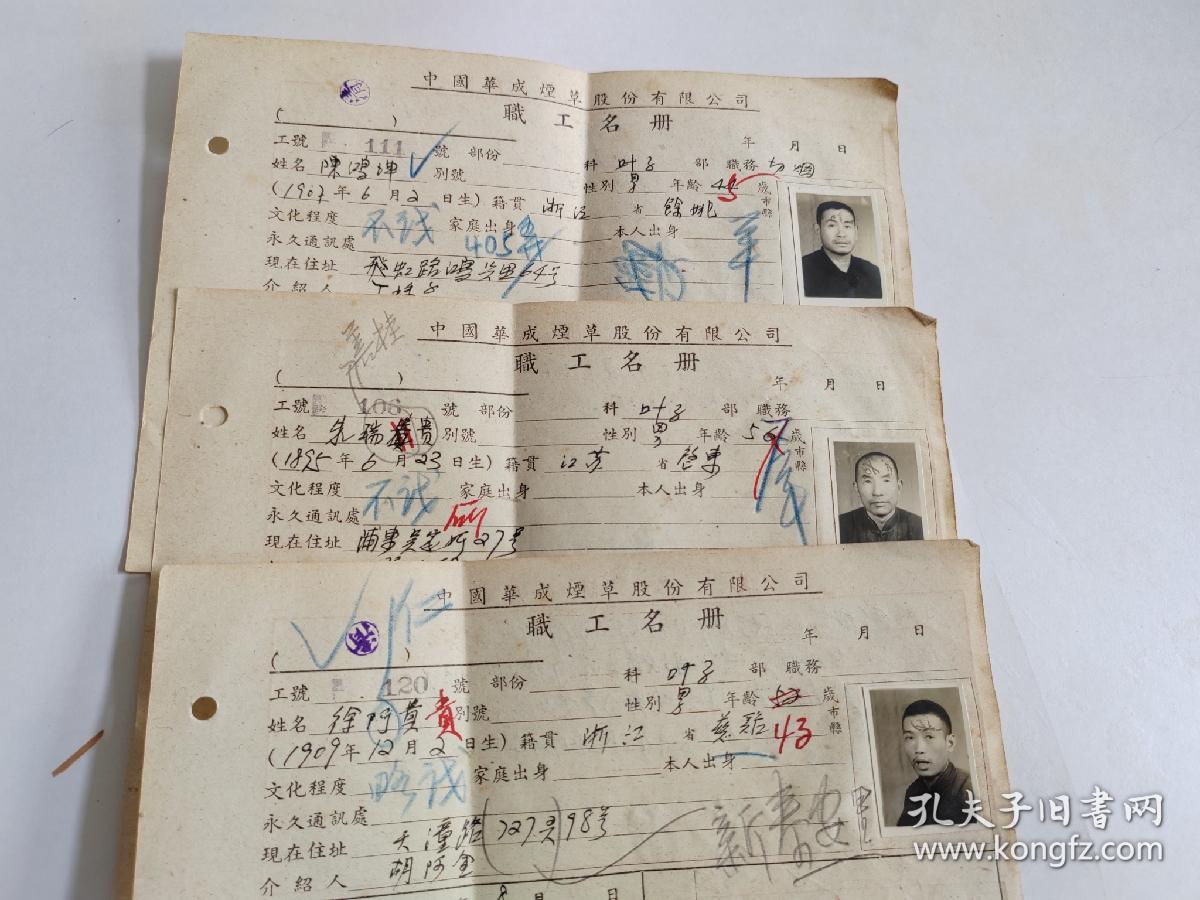 中國華成煙草股份有限公司
職工名册
( )
年 月 日
工號 111 號 部份 科 叶子 部 職務 切烟
姓名 陳鴻坤 別號 性別 男 年齡 44 5 歲
(1907年6月2日生) 籍貫 浙江 省 餘姚 市縣
文化程度 不識 家庭出身 本人出身
永久通訊處 405
現在住址 飛虹路鴻 里64号
介紹人
中國華成煙草股份有限公司
職工名册
( )
年 月 日
工號 106 號 部份 科 叶子 部 職務
姓名 朱瑞 貴 別號 性別 男 年齡 56 歲
(1895年6月23日生) 籍貫 江苏 省 啓東 市縣
文化程度 不識 家庭出身 本人出身
永久通訊處
現在住址 浦東 27号
中國華成煙草股份有限公司
職工名册
( )
年 月 日
工號 120 號 部份 科 叶子 部 職務
姓名 徐阿黄 貴 別號 性別 男 年齡 43 歲
(1909年12月2日生) 籍貫 浙江 省 慈谿 市縣
文化程度 略識 家庭出身 本人出身
永久通訊處
現在住址 天潼路727弄98号
介紹人 胡阿全
8月 日
孔夫子旧書网
www.kongfz.com